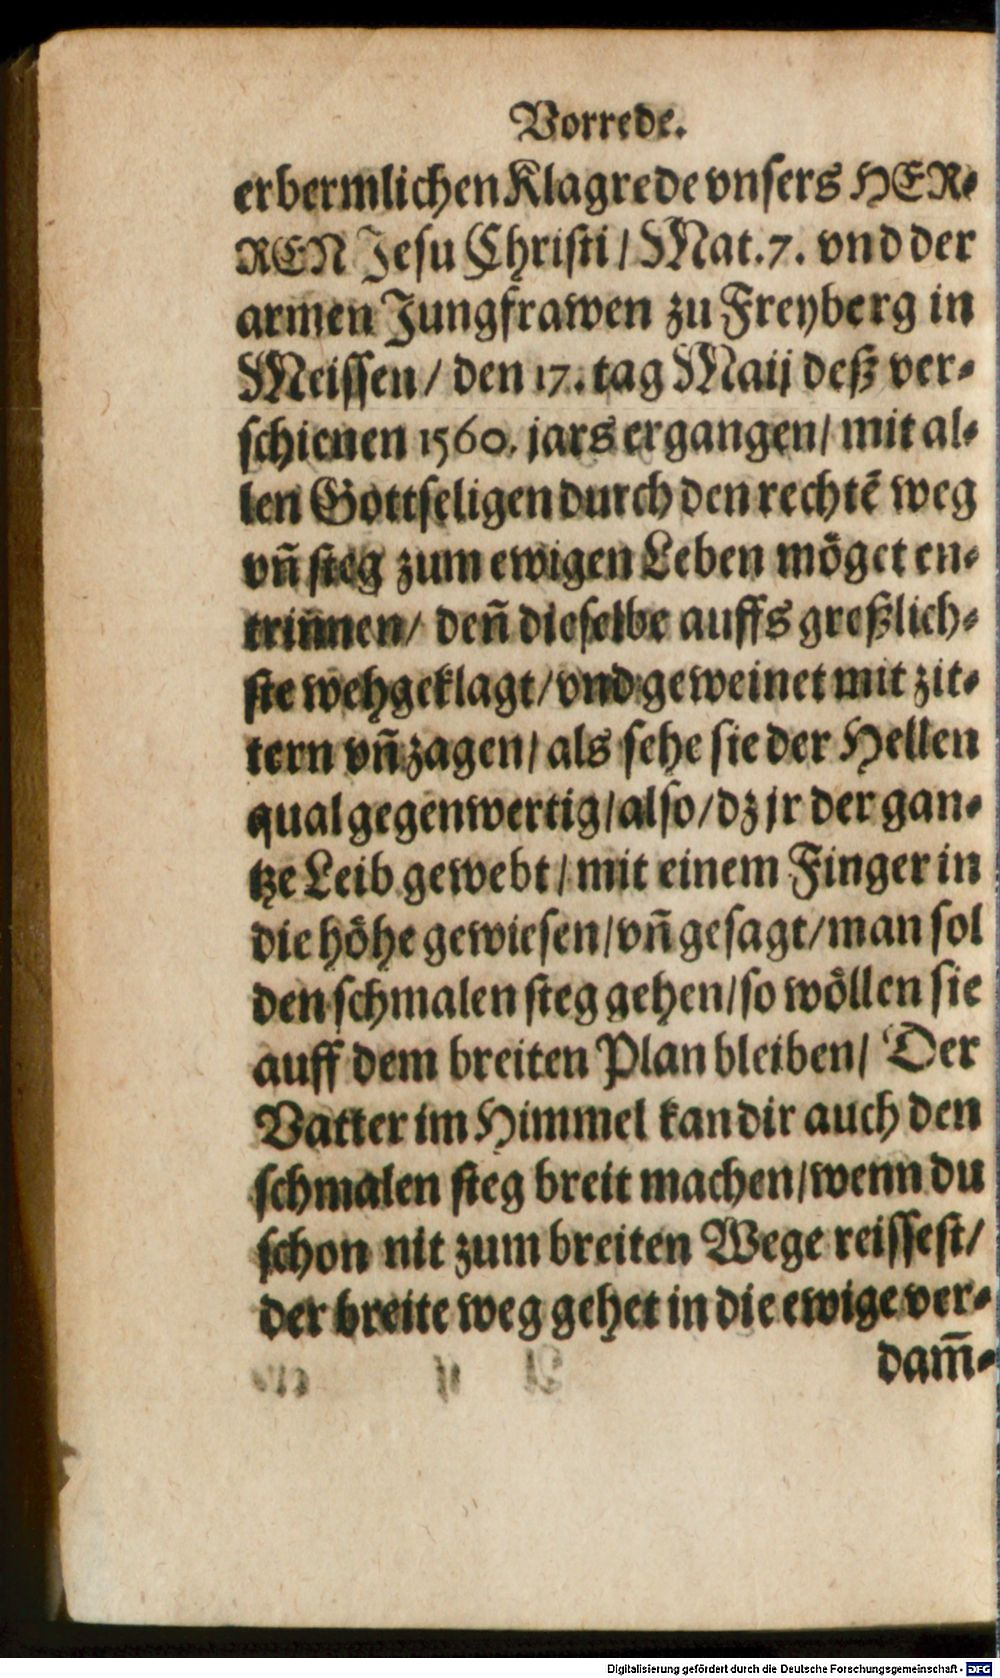 Vorrede.
erbermlichen Klagrede vnsers HER-
REN Jesu Christi / Mat. 7. vnd der
armen Jungfrawen zu Freyberg in
Meissen / den 17. tag Maij deß ver-
schienen 1560. jars ergangen / mit al-
len Gottseligen durch den rechtẽ weg
vñ steg zum ewigen Leben möget en-
trinnen / deñ dieselbe auffs greßlich-
ste wehgeklagt / vnd geweinet mit zit-
tern vñ zagen / als sehe sie der Hellen
qual gegenwertig / also / dz jr der gan-
tze Leib gewebt / mit einem Finger in
die höhe gewiesen / vñ gesagt / man sol
den schmalen steg gehen / so wöllen sie
auff dem breiten Plan bleiben / Der
Vatter im Himmel kan dir auch den
schmalen steg breit machen / wenn du
schon nit zum breiten Wege reissest /
der breite weg gehet in die ewige ver-
dam̃-
Digitalisierung gefördert durch die Deutsche Forschungsgemeinschaft - DFG